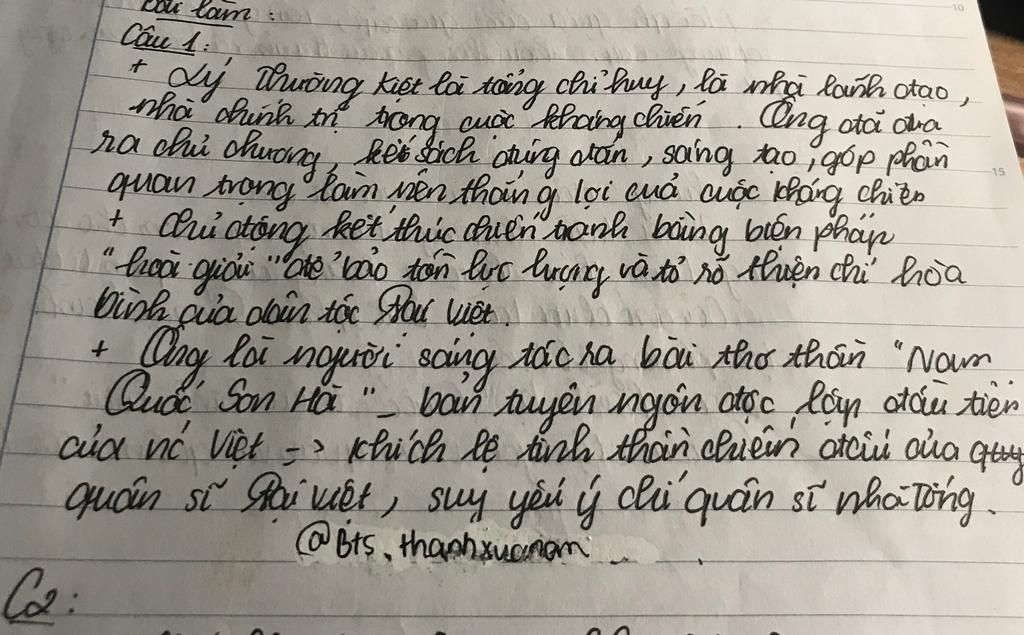 Bài làm :
Câu 1:
+ Lý Thường Kiệt là tổng chỉ huy, là nhà lãnh đạo,
nhà chính trị trong cuộc kháng chiến. Ông đã đưa
ra chủ chương, kế sách đúng đắn, sáng tạo, góp phần
quan trọng làm nên thắng lợi của cuộc kháng chiến
+ chủ động kết thúc chiến tranh bằng biện pháp
"hoà giải" để bảo tồn lực lượng và tỏ rõ thiện chí hòa
bình của dân tộc Đại Việt.
+ Ông là người sáng tác ra bài thơ thần "Nam
Quốc Sơn Hà" - bản tuyên ngôn độc lập đầu tiên
của nc Việt => khích lệ tinh thần chiến đấu của quy
quân sĩ Đại Việt, suy yếu ý chí quân sĩ nhà Tống.
@Bts.thanhxuanam
C2: